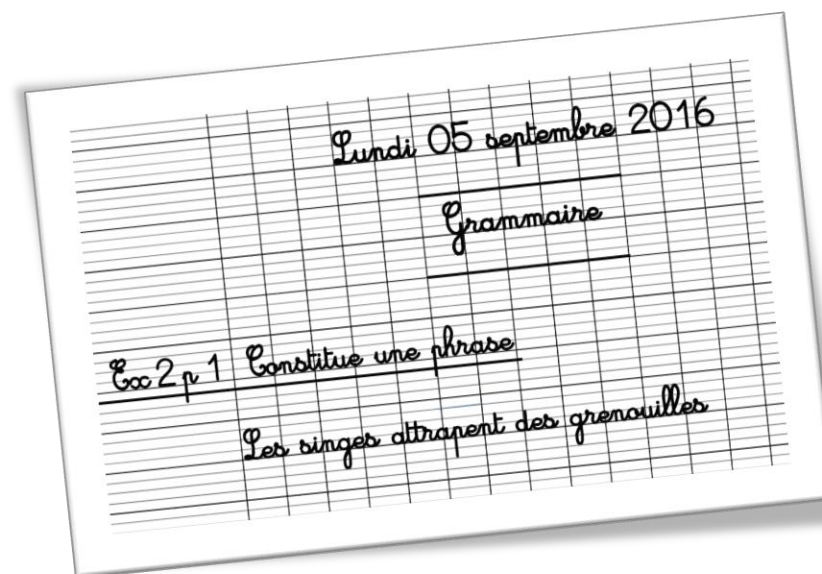 Lundi 05 septembre 2016
Grammaire
Ex 2 p 1 Constitue une phrase
Les singes attrapent des grenouilles